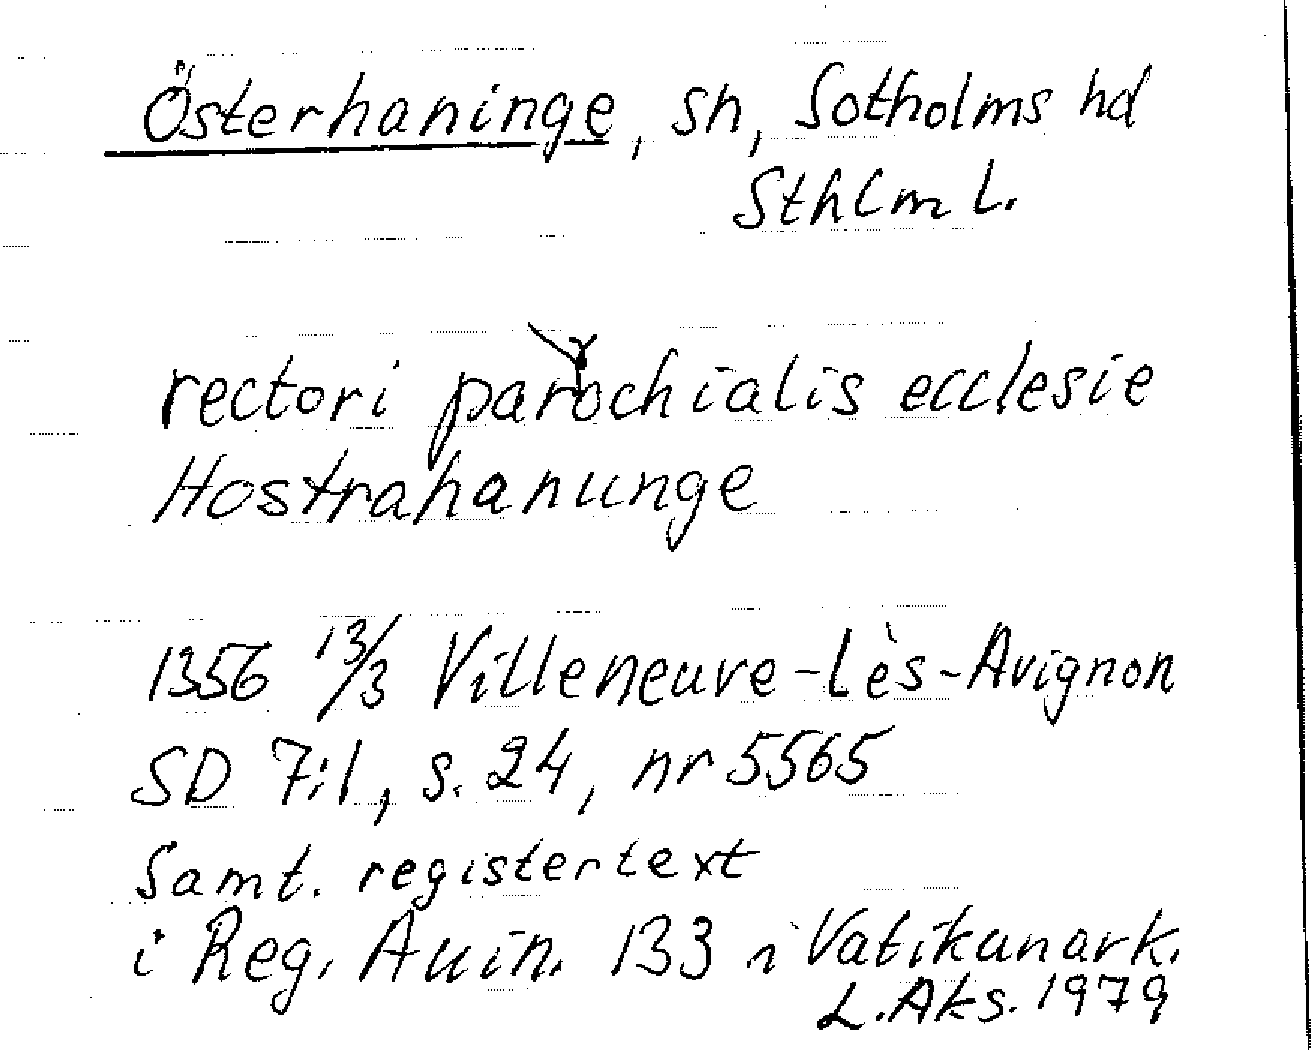 Österhaninge, sn, Sotholms hd
Sthlm l.
rectori parochialis ecclesie
Hostrahanunge
1356 13/3 Villeneuve-Lès-Avignon
SD 7:1, s. 24, nr 5565
Samt. registertext
i Reg. Auin. 133 i Vatikanark.
L. Aks. 1979